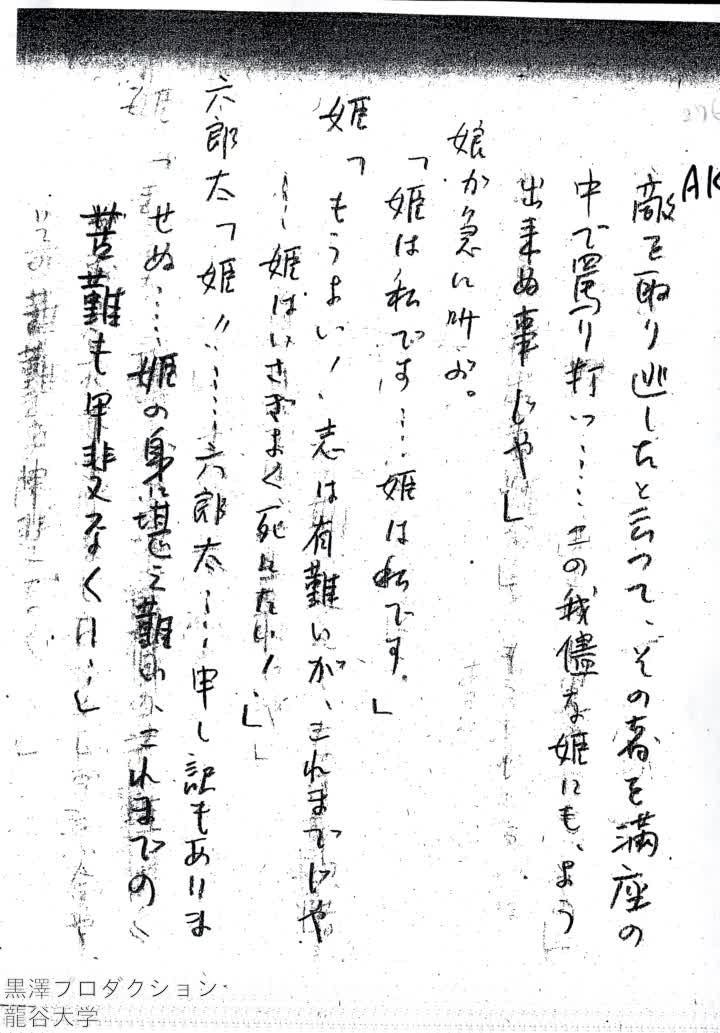 AK
敵を取り逃したと云つて、その者を満座の
中で罵り打つ……この我儘な姫にも、よう
出来ぬ事じや」
娘が急に叫ぶ。
「姫は私です……姫は私です。」
姫「もうよい!、志は有難いが、これまでじや
……姫はいさぎよく死にたい!」
六郎太「姫!!……六郎太……申し訳もありま
せぬ……姫の身に堪え難い、これまでの
苦難も甲斐なく……」
黒澤プロダクション
龍谷大学